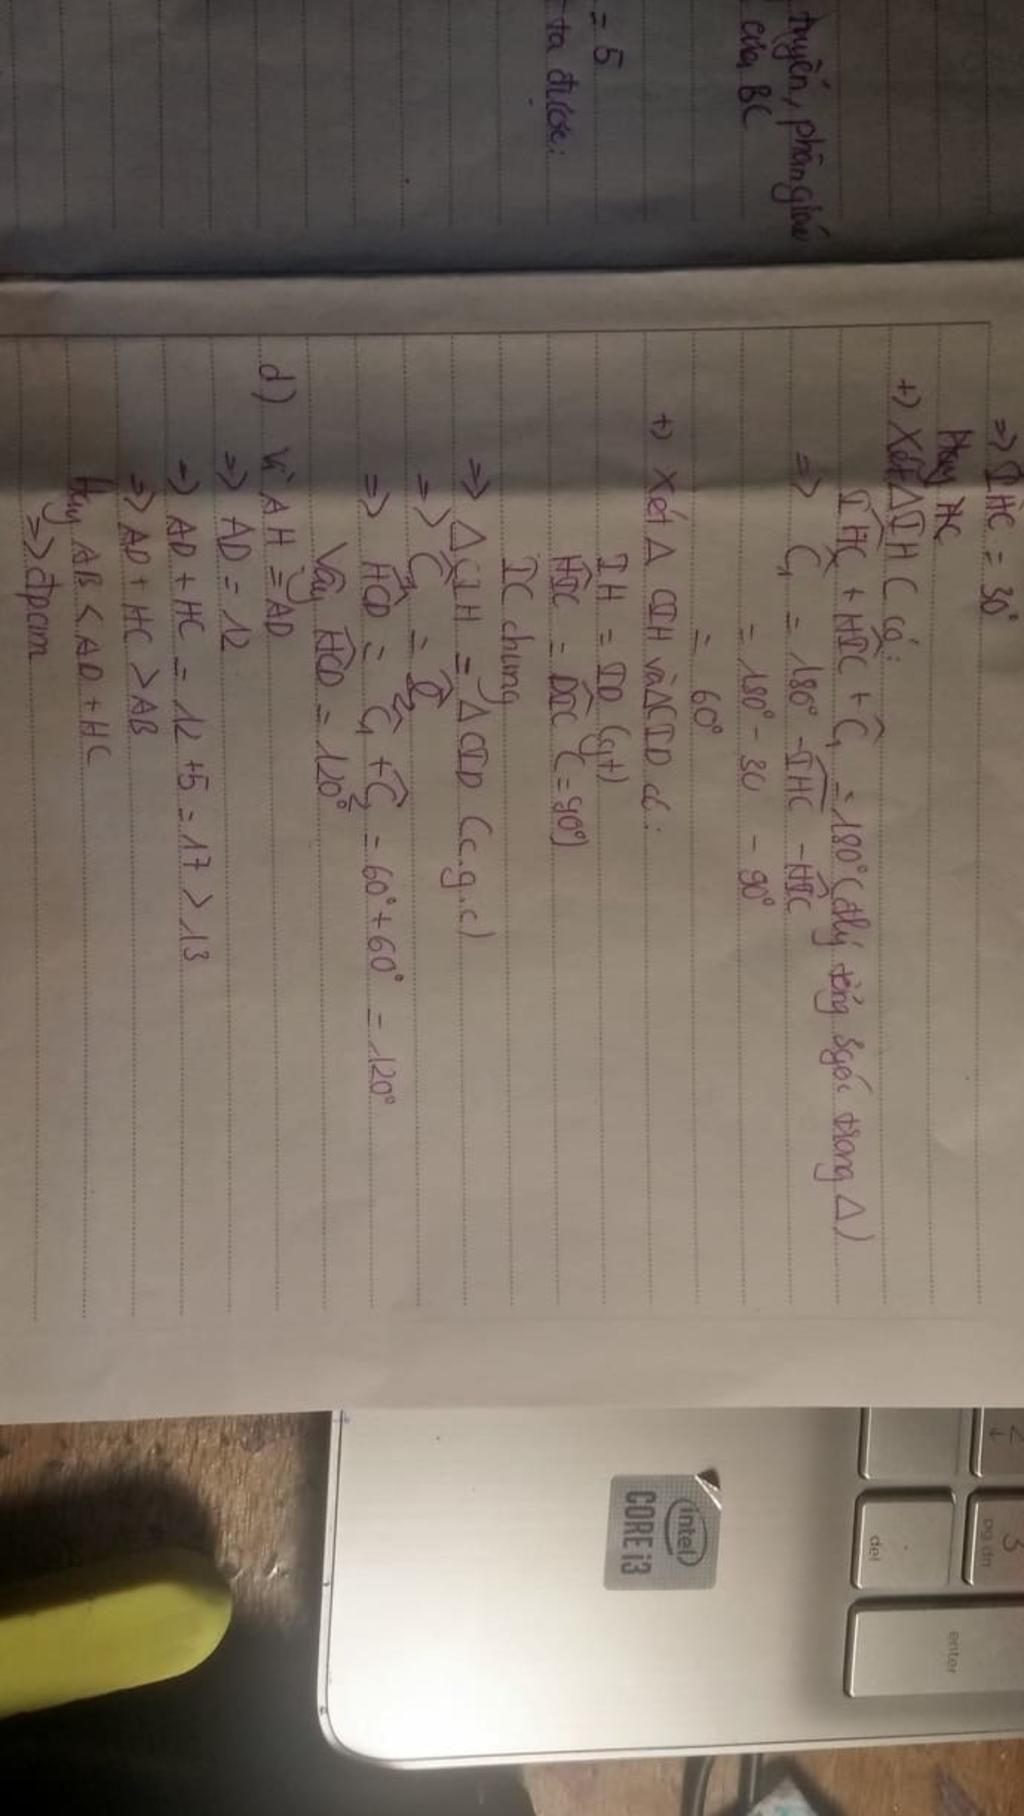 tuyến, phân giác
của BC
= 5
ta được:
=> IHC = 30°
Hay HC
+) Xét ΔIHC có:
IHC + HIC + C₁ = 180° (đlý tổng 3 góc trong Δ)
=> C₁ = 180° - IHC - HIC
= 180° - 30 - 90°
= 60°
+) Xét Δ CIH và ΔCID có:
IH = ID (gt)
HIC = DIC (= 90°)
IC chung
=> ΔCIH = ΔCID (c.g.c)
=> C₁ = C₂
=> HCD = C₁ + C₂ = 60° + 60° = 120°
Vậy HCD = 120°
d) Vì AH = AD
=> AD = 12
=> AD + HC = 12 + 5 = 17 > 13
=> AD + HC > AB
Hay AB < AD + HC
=> đpcm
intel
CORE i3
2
↓
3
pg dn
del
enter